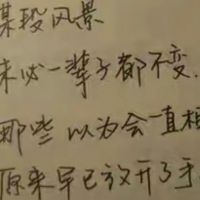 某段风景
未必一辈子都不变.
那些以为会一直相
原来早已放开了手